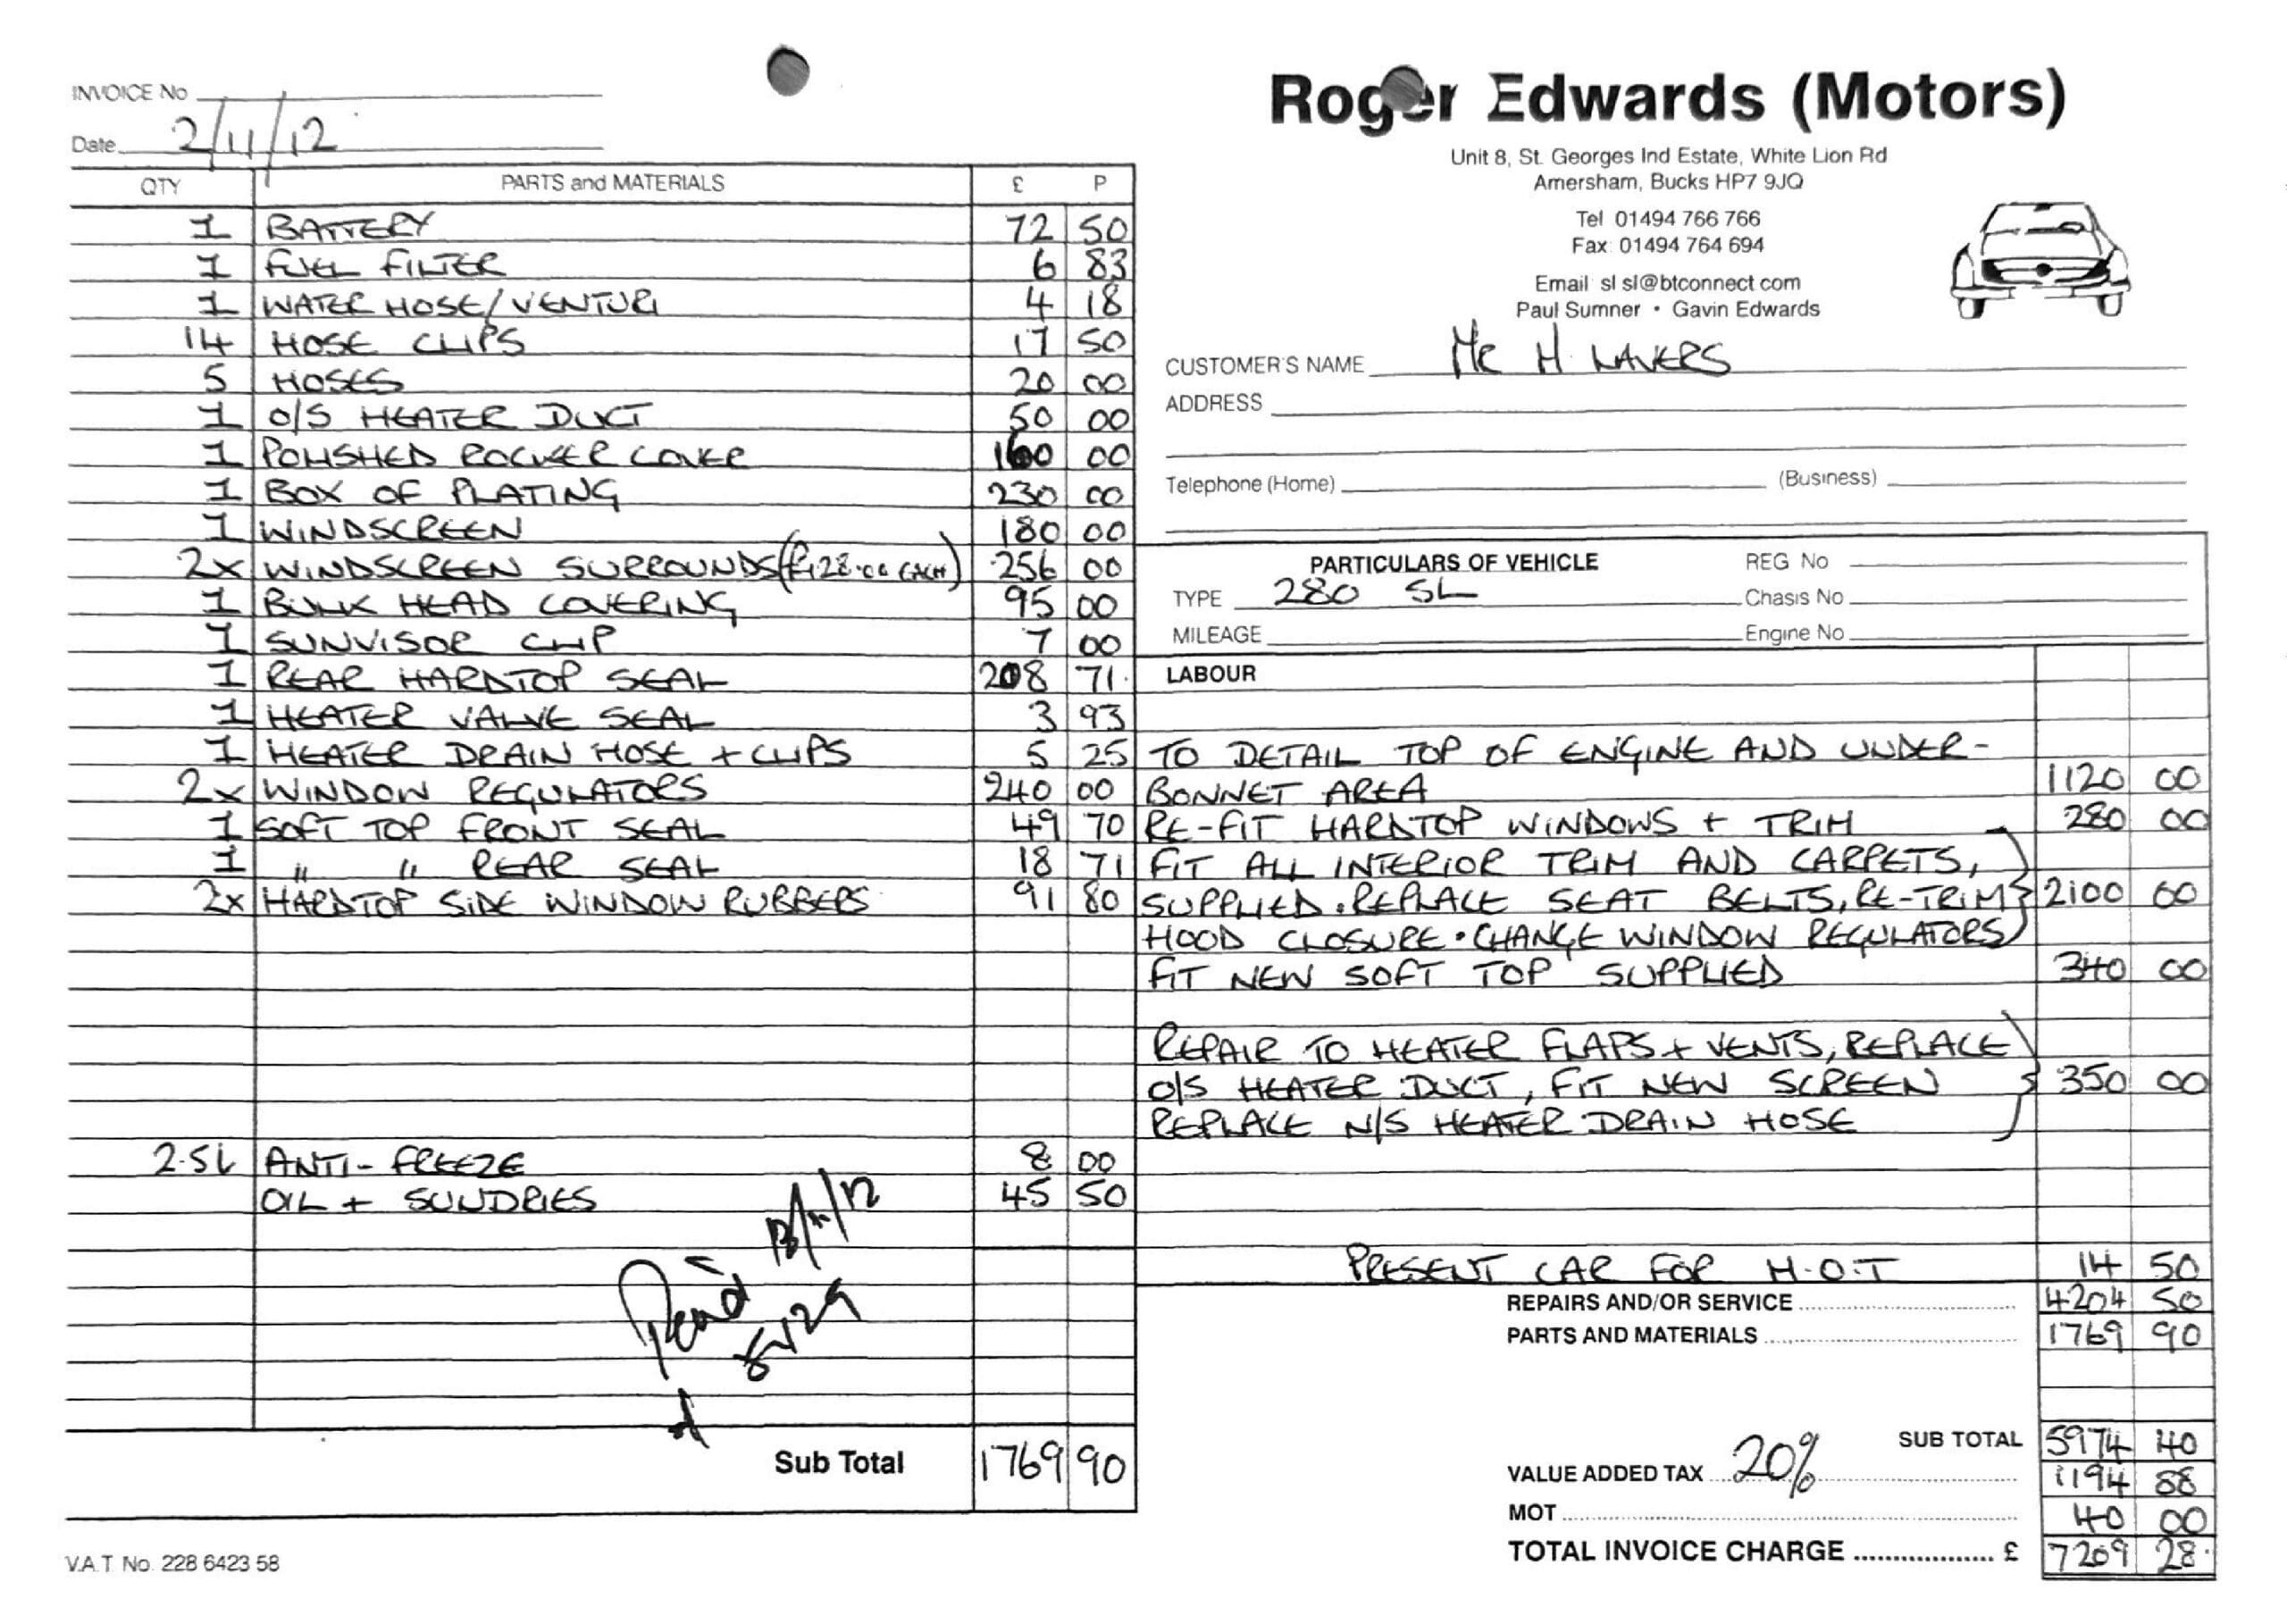 INVOICE No
Date 2/11/12
QTY PARTS and MATERIALS £ P
1 BATTERY 72 50
1 FUEL FILTER 6 83
1 WATER HOSE/VENTURI 4 18
14 HOSE CLIPS 17 50
5 HOSES 20 00
1 O/S HEATER DUCT 50 00
1 POLISHED ROCKER COVER 160 00
1 BOX OF PLATING 230 00
1 WINDSCREEN 180 00
2x WINDSCREEN SURROUNDS (£128.00 EACH) 256 00
1 BULK HEAD COVERING 95 00
1 SUNVISOR CLIP 7 00
1 REAR HARDTOP SEAL 208 71
1 HEATER VALVE SEAL 3 93
1 HEATER DRAIN HOSE + CLIPS 5 25
2x WINDOW REGULATORS 240 00
1 SOFT TOP FRONT SEAL 49 70
1 " " REAR SEAL 18 71
2x HARDTOP SIDE WINDOW RUBBERS 91 80
2.5L ANTI-FREEZE 8 00
OIL + SUNDRIES 45 50
Sub Total 1769 90
V.A.T No. 228 6423 58
Roger Edwards (Motors)
Unit 8, St. Georges Ind Estate, White Lion Rd
Amersham, Bucks HP7 9JQ
Tel 01494 766 766
Fax: 01494 764 694
Email sl sl@btconnect.com
Paul Sumner • Gavin Edwards
CUSTOMER'S NAME MR H. LAVERS
ADDRESS
Telephone (Home) (Business)
PARTICULARS OF VEHICLE REG No
TYPE 280 SL Chasis No
MILEAGE Engine No
LABOUR
TO DETAIL TOP OF ENGINE AND UNDER-
BONNET AREA 1120 00
RE-FIT HARDTOP WINDOWS + TRIM 280 00
FIT ALL INTERIOR TRIM AND CARPETS,
SUPPLIED. REPLACE SEAT BELTS, RE-TRIM 2100 00
HOOD CLOSURE. CHANGE WINDOW REGULATORS
FIT NEW SOFT TOP SUPPLIED 340 00
REPAIR TO HEATER FLAPS + VENTS, REPLACE
O/S HEATER DUCT, FIT NEW SCREEN 350 00
REPLACE N/S HEATER DRAIN HOSE
PRESENT CAR FOR M.O.T 14 50
REPAIRS AND/OR SERVICE 4204 50
PARTS AND MATERIALS 1769 90
SUB TOTAL 5974 40
VALUE ADDED TAX 20% 1194 88
MOT 40 00
TOTAL INVOICE CHARGE £ 7209 28